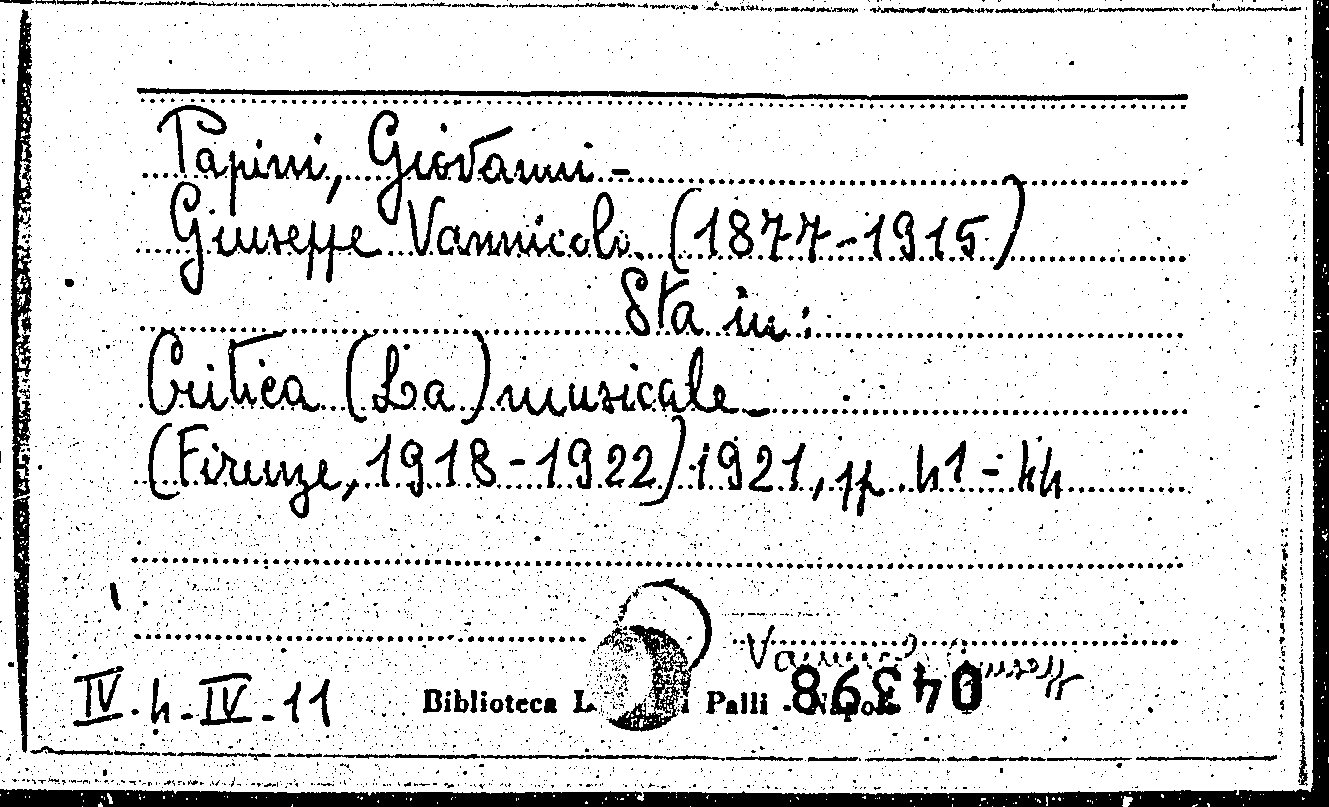 Papini, Giovanni -
Giuseppe Vannicola (1877-1915)
Sta in:
Critica (La) musicale -
(Firenze, 1918-1922) 1921, pp. 41-44
IV.4.IV.11
Biblioteca L i Palli - Napoli
04398